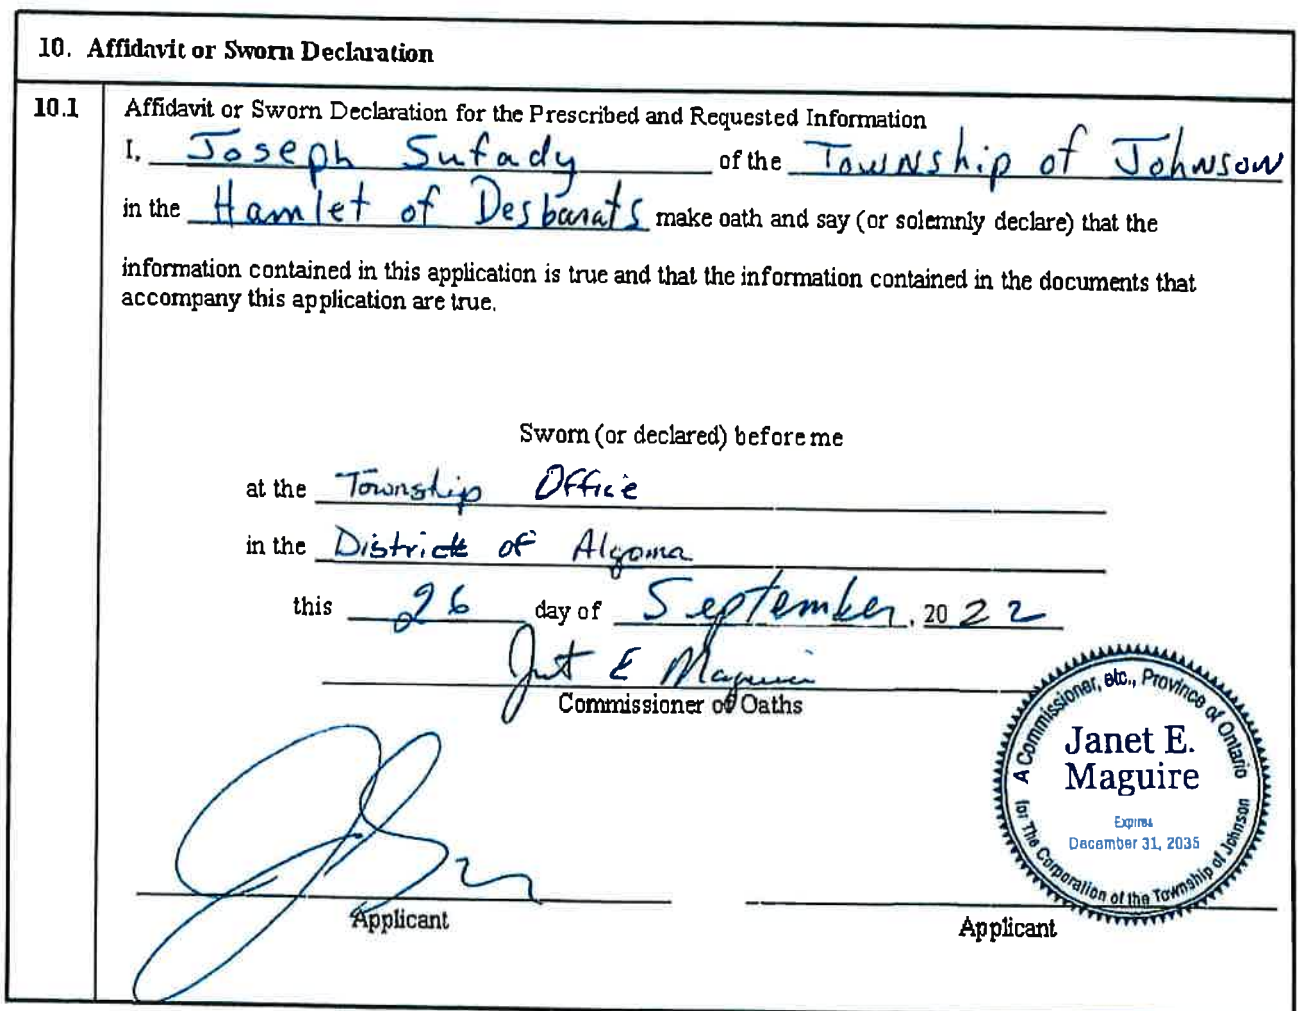 10. Affidavit or Sworn Declaration
10.1 Affidavit or Sworn Declaration for the Prescribed and Requested Information
I, Joseph Sufady of the Township of Johnson
in the Hamlet of Desbarats make oath and say (or solemnly declare) that the
information contained in this application is true and that the information contained in the documents that
accompany this application are true.
Sworn (or declared) before me
at the Township Office
in the District of Algoma
this 26 day of September, 2022
Janet E Maguire
Commissioner of Oaths
A Commissioner, etc., Province of Ontario
Janet E.
Maguire
Expires
December 31, 2035
for The Corporation of the Township of Johnson
Applicant
Applicant